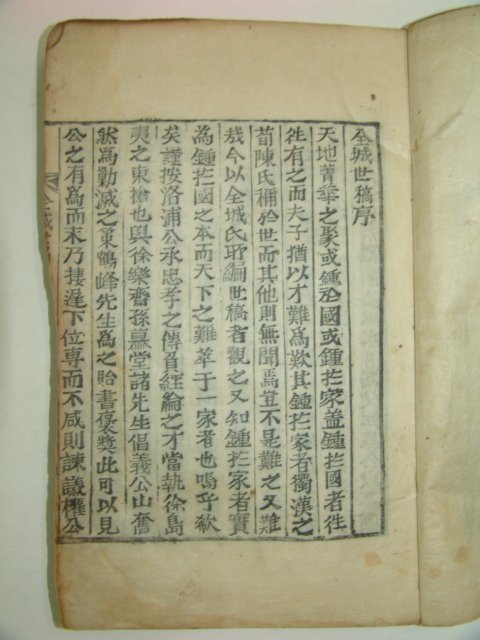 全城世稿序
天地菁華之聚或鍾於國或鍾於家盖鍾於國者徃
徃有之而夫子猶以才難爲歎其鍾於家者獨漢之
荀陳氏稱於世而其他則無聞焉豈不是難之又難
㢤今以全城氏所編世稿者觀之又知鍾於家者實
為鍾於國之本而天下之難萃于一家者也嗚乎欷
矣謹按洛浦公承忠孝之傳負經綸之才當執徐島
夷之東搶也與徐樂齋孫慕堂諸先生倡義公山奮
然爲勦滅之策鶴峰先生爲之貽書褒奬此可以見
公之有爲而末乃捿遲下位専而不咸則諫議權公